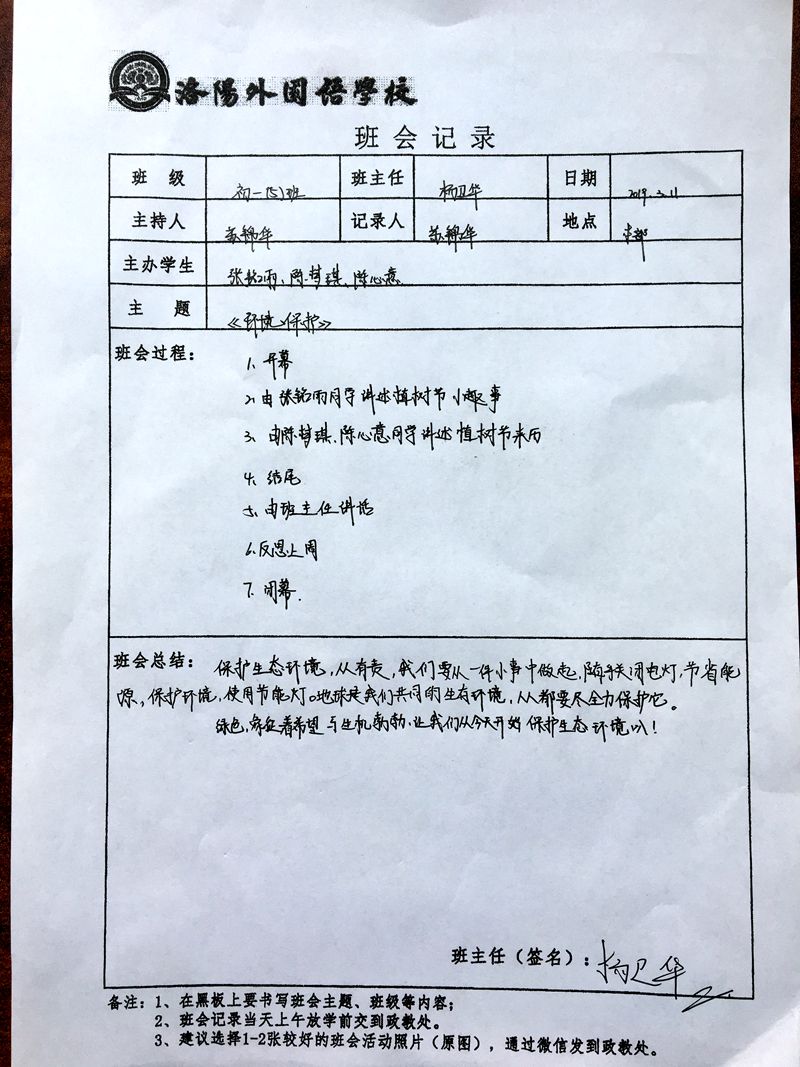 洛陽外国语學校
班会记录
班 级 初一(5)班 班主任 杨卫华 日期 2019.3.11
主持人 苏锦华 记录人 苏锦华 地点 本部
主办学生 张铭雨、陈梦琪、陈心意
主 题 《环境保护》
班会过程：
1、开幕
2、由张铭雨同学讲述植树节小趣事
3、由陈梦琪、陈心意同学讲述植树节来历
4、结尾
5、由班主任讲话
6、反思上周
7、闭幕.
班会总结： 保护生态环境，从有责，我们要从一件小事中做起，随手关闭电灯，节省能
源，保护环境，使用节能灯。地球是我们共同的生存环境，人人都要尽全力保护它。
绿色，象征着希望与生机勃勃，让我们从今天开始保护生态环境叭！
班主任（签名）：杨卫华
备注：1、在黑板上要书写班会主题、班级等内容；
2、班会记录当天上午放学前交到政教处。
3、建议选择1-2张较好的班会活动照片（原图），通过微信发到政教处。